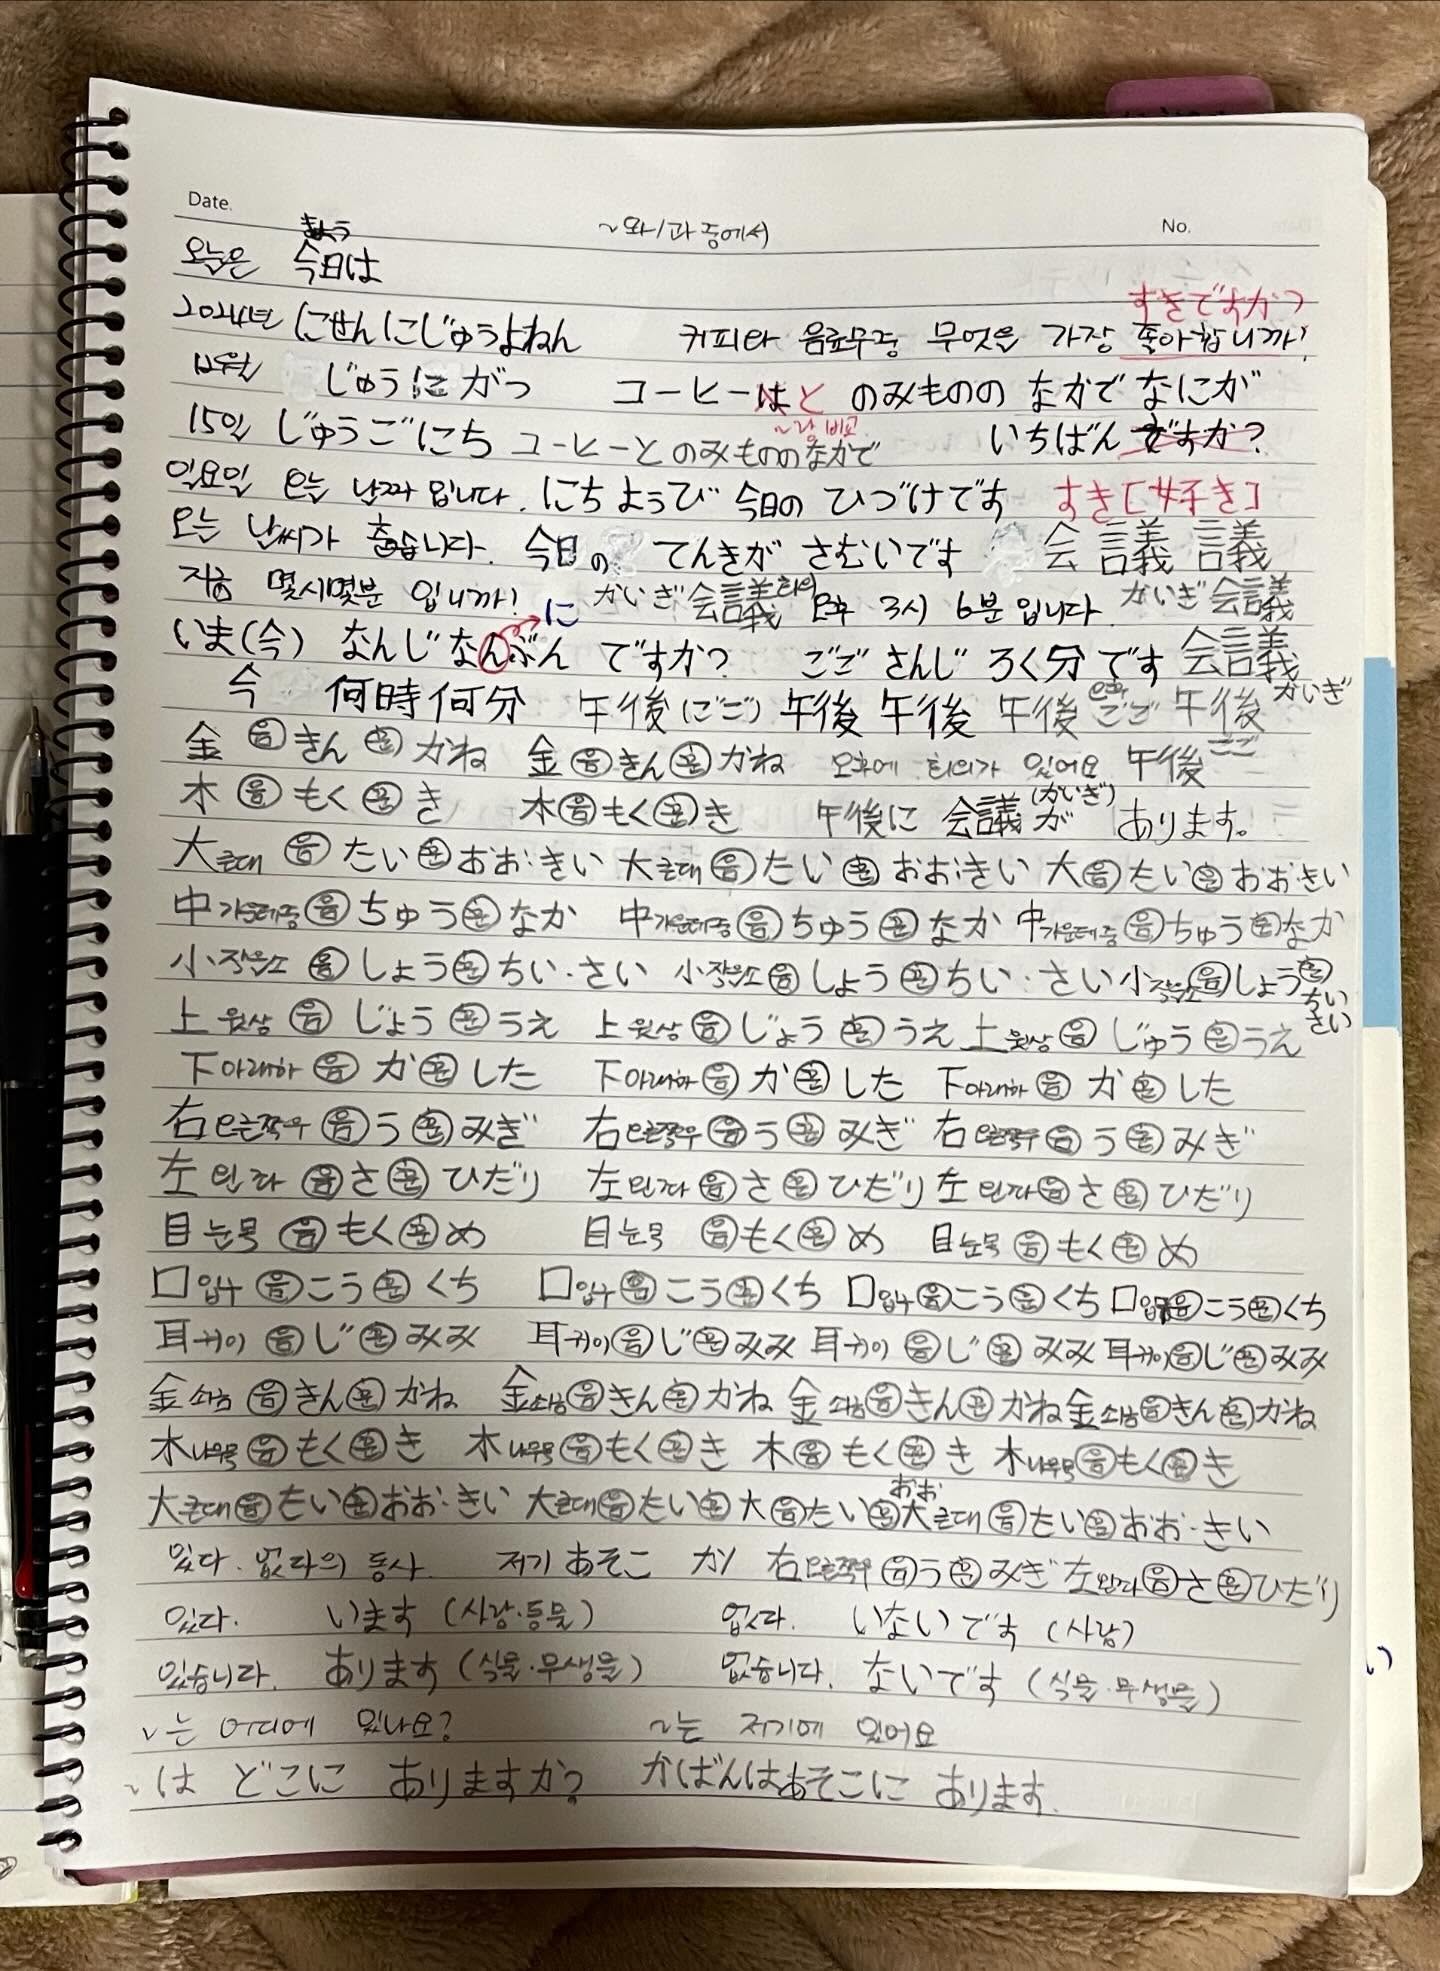 Date.
No.
~와/과 중에서
きょう
오늘은 今日は
すきですか?
2024년 にせんにじゅうよねん 커피와 음료수중 무엇을 가장 좋아합니까?
12월 じゅうにがつ コーヒーは と のみものの なかで なにが
~랑 비교
15일 じゅうごにち コーヒーと のみものの なかで いちばん ですか?
일요일 오늘 날짜 입니다. にちようび 今日の ひづけです すき [好き]
오늘 날씨가 춥습니다. 今日の てんきが さむいです 会 議 議
지금 몇시몇분 입니까? に かいぎ 会議 회의 오후 3시 6분입니다. かいぎ 会議
いま(今) なんじなんぶん ですか? ごご さんじ ろく分です 会議
今 何時何分 午後(ごご) 午後 午後 午後 오후 ごご 午後 かいぎ
金 음 きん 훈 かね 金 음 きん 훈 かね 오후에 회의가 있어요 午後 ごご
木 음 もく 훈 き 木 음 もく 훈 き 午後に 会議(かいぎ)が あります。
大 큰대 음 たい 훈 おお·きい 大 큰대 음 たい 훈 おお·きい 大 음 たい 훈 おお·きい
中 가운데중 음 ちゅう 훈 なか 中 가운데중 음 ちゅう 훈 なか 中 가운데중 음 ちゅう 훈 なか
小 작을소 음 しょう 훈 ちい·さい 小 작을소 음 しょう 훈 ちい·さい 小 작을소 음 しょう 훈 ちい さい
上 윗상 음 じょう 훈 うえ 上 윗상 음 じょう 훈 うえ 上 윗상 음 じゅう 훈 うえ
下 아래하 음 か 훈 した 下 아래하 음 か 훈 した 下 아래하 음 か 훈 した
右 오른쪽우 음 う 훈 みぎ 右 오른쪽우 음 う 훈 みぎ 右 오른쪽우 음 う 훈 みぎ
左 왼좌 음 さ 훈 ひだり 左 왼좌 음 さ 훈 ひだり 左 왼좌 음 さ 훈 ひだり
目 눈목 음 もく 훈 め 目 눈목 음 もく 훈 め 目 눈목 음 もく 훈 め
口 입구 음 こう 훈 くち 口 입구 음 こう 훈 くち 口 입구 음 こう 훈 くち 口 입구 음 こう 훈 くち
耳 귀이 음 じ 훈 みみ 耳 귀이 음 じ 훈 みみ 耳 귀이 음 じ 훈 みみ 耳 귀이 음 じ 훈 みみ
金 쇠금 음 きん 훈 かね 金 쇠금 음 きん 훈 かね 金 쇠금 음 きん 훈 かね 金 쇠금 음 きん 훈 かね
木 나무목 음 もく 훈 き 木 나무목 음 もく 훈 き 木 음 もく 훈 き 木 나무목 음 もく 훈 き
大 큰대 음 たい 훈 おお·きい 大 큰대 음 たい 훈 大 음 たい 훈 おお 大 큰대 음 たい 훈 おお·きい
있다. 없다의 동사. 저기 あそこ 右 오른쪽우 음 う 훈 みぎ 左 왼좌 음 さ 훈 ひだり
있다. います (사람·동물) 없다. いないです (사람)
있습니다. あります (식물·무생물) 없습니다. ないです (식물·무생물)
~는 어디에 있나요? ~는 저기에 있어요
~は どこに ありますか? かばんは あそこに あります.